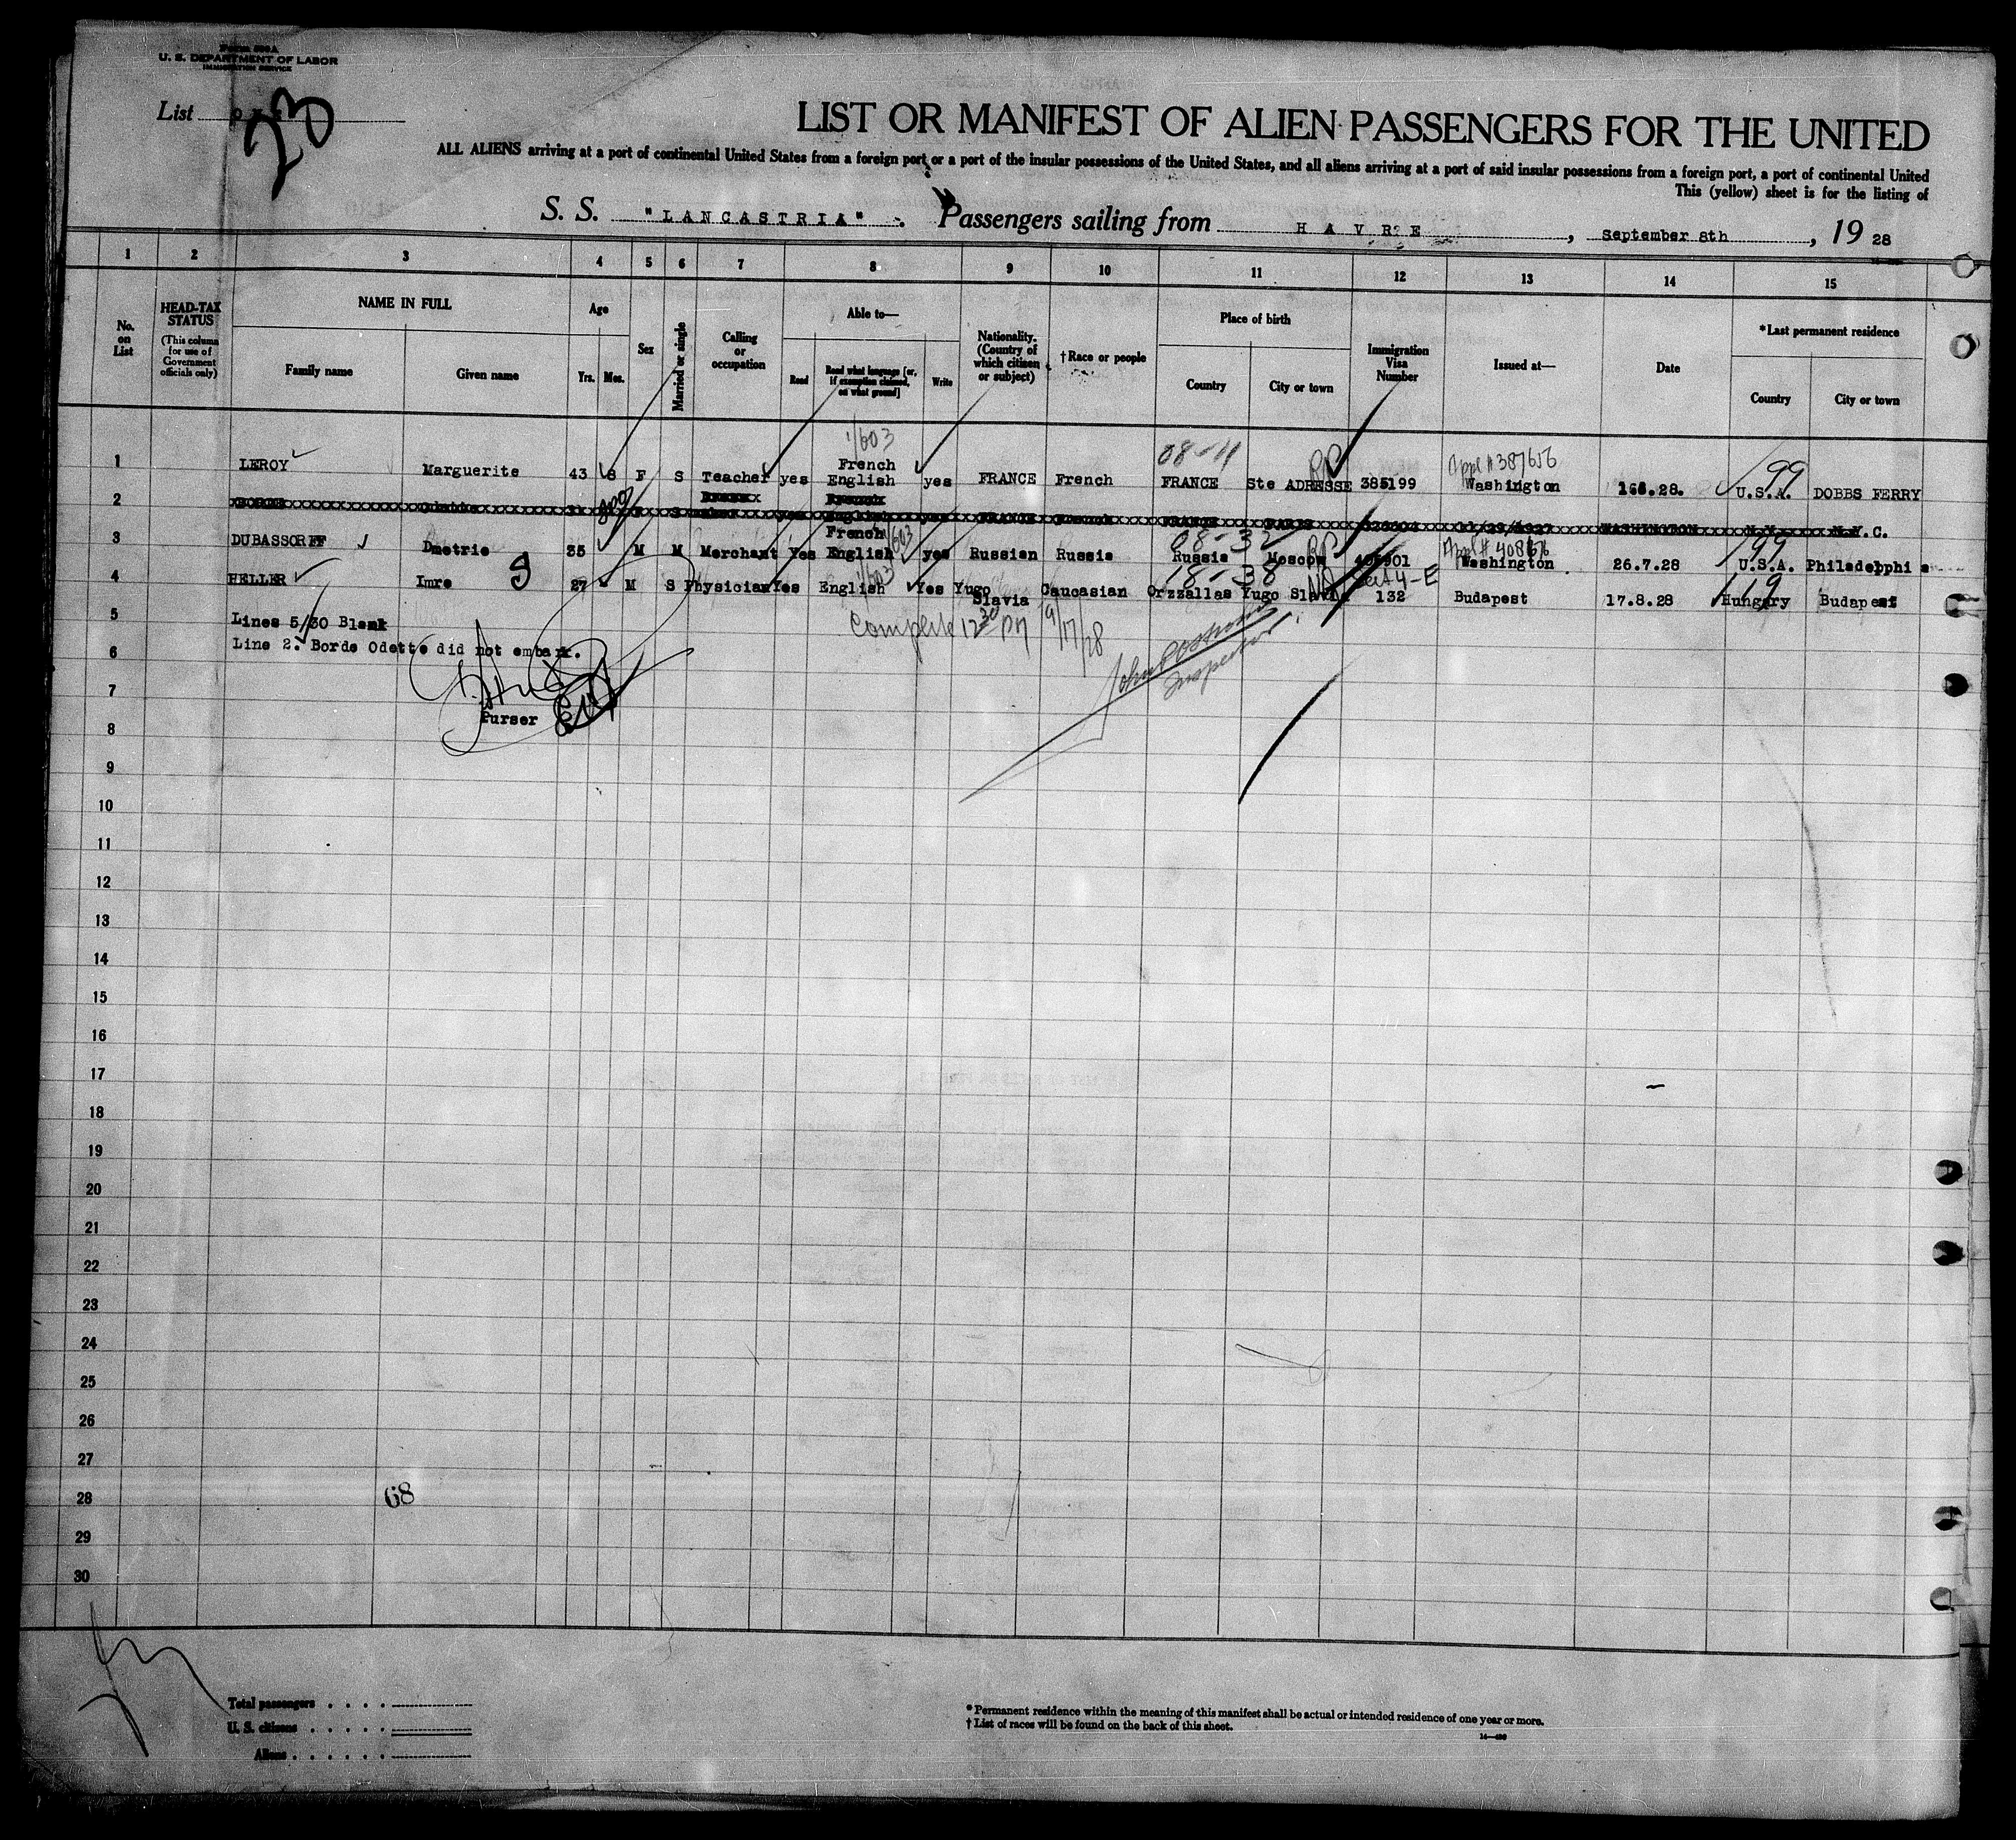 Form 500A
U. S. DEPARTMENT OF LABOR
IMMIGRATION SERVICE
List
23
LIST OR MANIFEST OF ALIEN PASSENGERS FOR THE UNITED
ALL ALIENS arriving at a port of continental United States from a foreign port or a port of the insular possessions of the United States, and all aliens arriving at a port of said insular possessions from a foreign port, a port of continental United
This (yellow) sheet is for the listing of
S. S. "LANCASTRIA" Passengers sailing from HAVRE, September 8th, 19 28
1 2 3 4 5 6 7 8 9 10 11 12 13 14 15
No. on List
HEAD-TAX STATUS
(This column for use of Government officials only)
NAME IN FULL
Family name Given name
Age
Yrs. Mos.
Sex
Married or single
Calling or occupation
Able to—
Read Read what language [or, if exemption claimed, on what ground] Write
Nationality. (Country of which citizen or subject)
†Race or people
Place of birth
Country City or town
Immigration Visa Number
Issued at—
Date
*Last permanent residence
Country City or town
1/603 08-11 RP Appl # 387656 99
1 LEROY Marguerite 43 8 F S Teacher yes French English yes FRANCE French FRANCE Ste ADRESSE 385199 Washington .28. U.S.A. DOBBS FERRY
2 BORDE Odette F S yes English yes FRANCE French FRANCE PARIS 11/23/1927 WASHINGTON N.Y. N.Y.C.
08-32 RP Appl # 99
3 DUBASSORFF Dmetrie 35 M M Merchant Yes French English yes Russian Russia Russia Moscow Washington 26.7.28 U.S.A. Philadelphi
1/603 18-38 Sect 4-E 119
4 HELLER Imre 27 M S Physician Yes English Yes Yugo Slavia Caucasian Orzzallas Yugo Slavia 132 Budapest 17.8.28 Hungary Budapest
5 Lines 5/30 Blank
Complete 12 30 PM 9/17/28
6 Line 2. Borde Odette did not embark.
John
Inspector
7
Purser
8
9
10
11
12
13
14
15
16
17
18
19
20
21
22
23
24
25
26
27
28
68
29
30
Total passengers
U. S. citizens
Aliens
* Permanent residence within the meaning of this manifest shall be actual or intended residence of one year or more.
† List of races will be found on the back of this sheet.